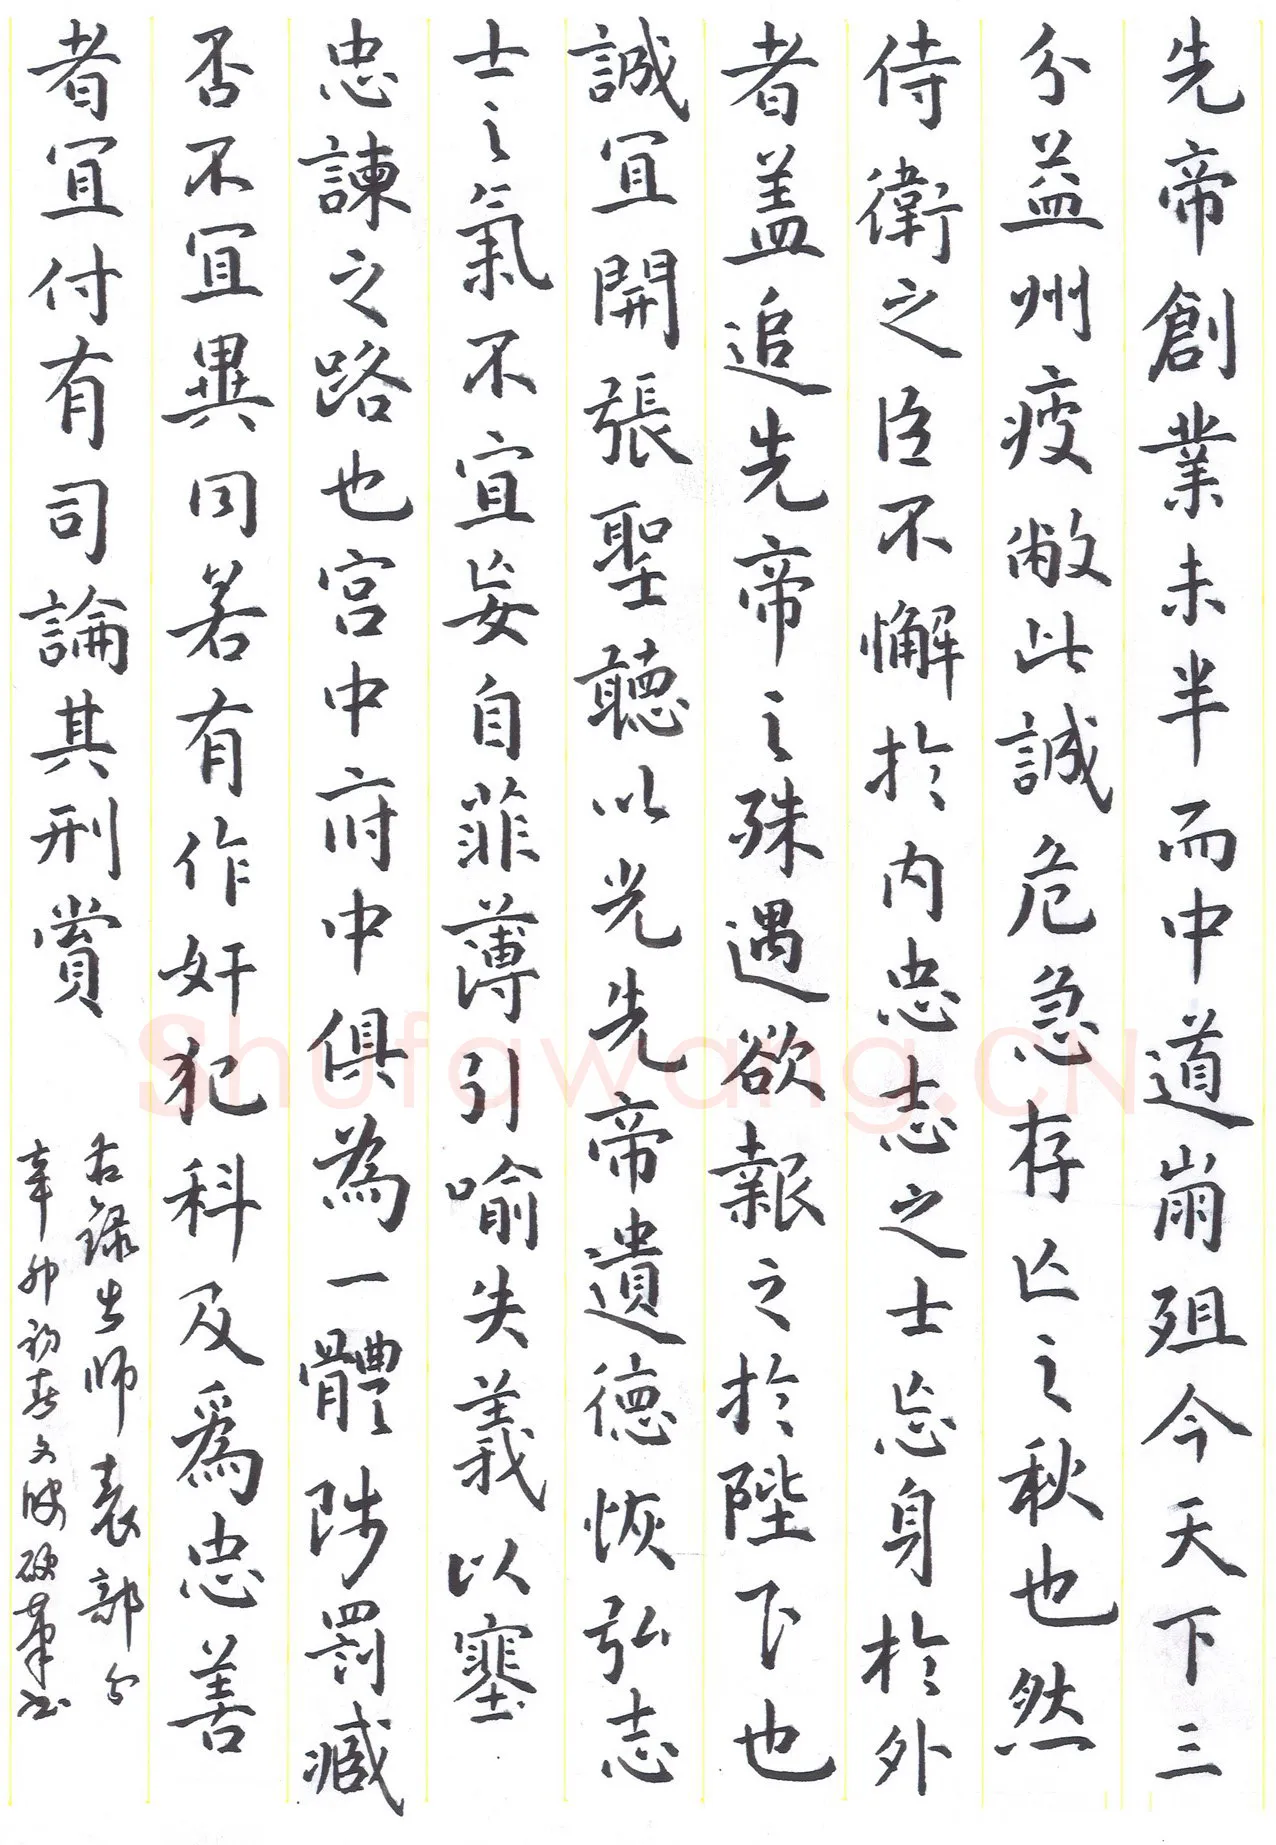 先帝創業未半而中道崩殂今天下三
分益州疲敝此誠危急存亡之秋也然
侍衛之臣不懈於內忠志之士忘身於外
者蓋追先帝之殊遇欲報之於陛下也
誠宜開張聖聽以光先帝遺德恢弘志
士之氣不宜妄自菲薄引喻失義以塞
忠諫之路也宮中府中俱為一體陟罰臧
否不宜異同若有作奸犯科及為忠善
者宜付有司論其刑賞
右錄出師表部分
辛卯初春文波硬筆書
Shufawang.CN